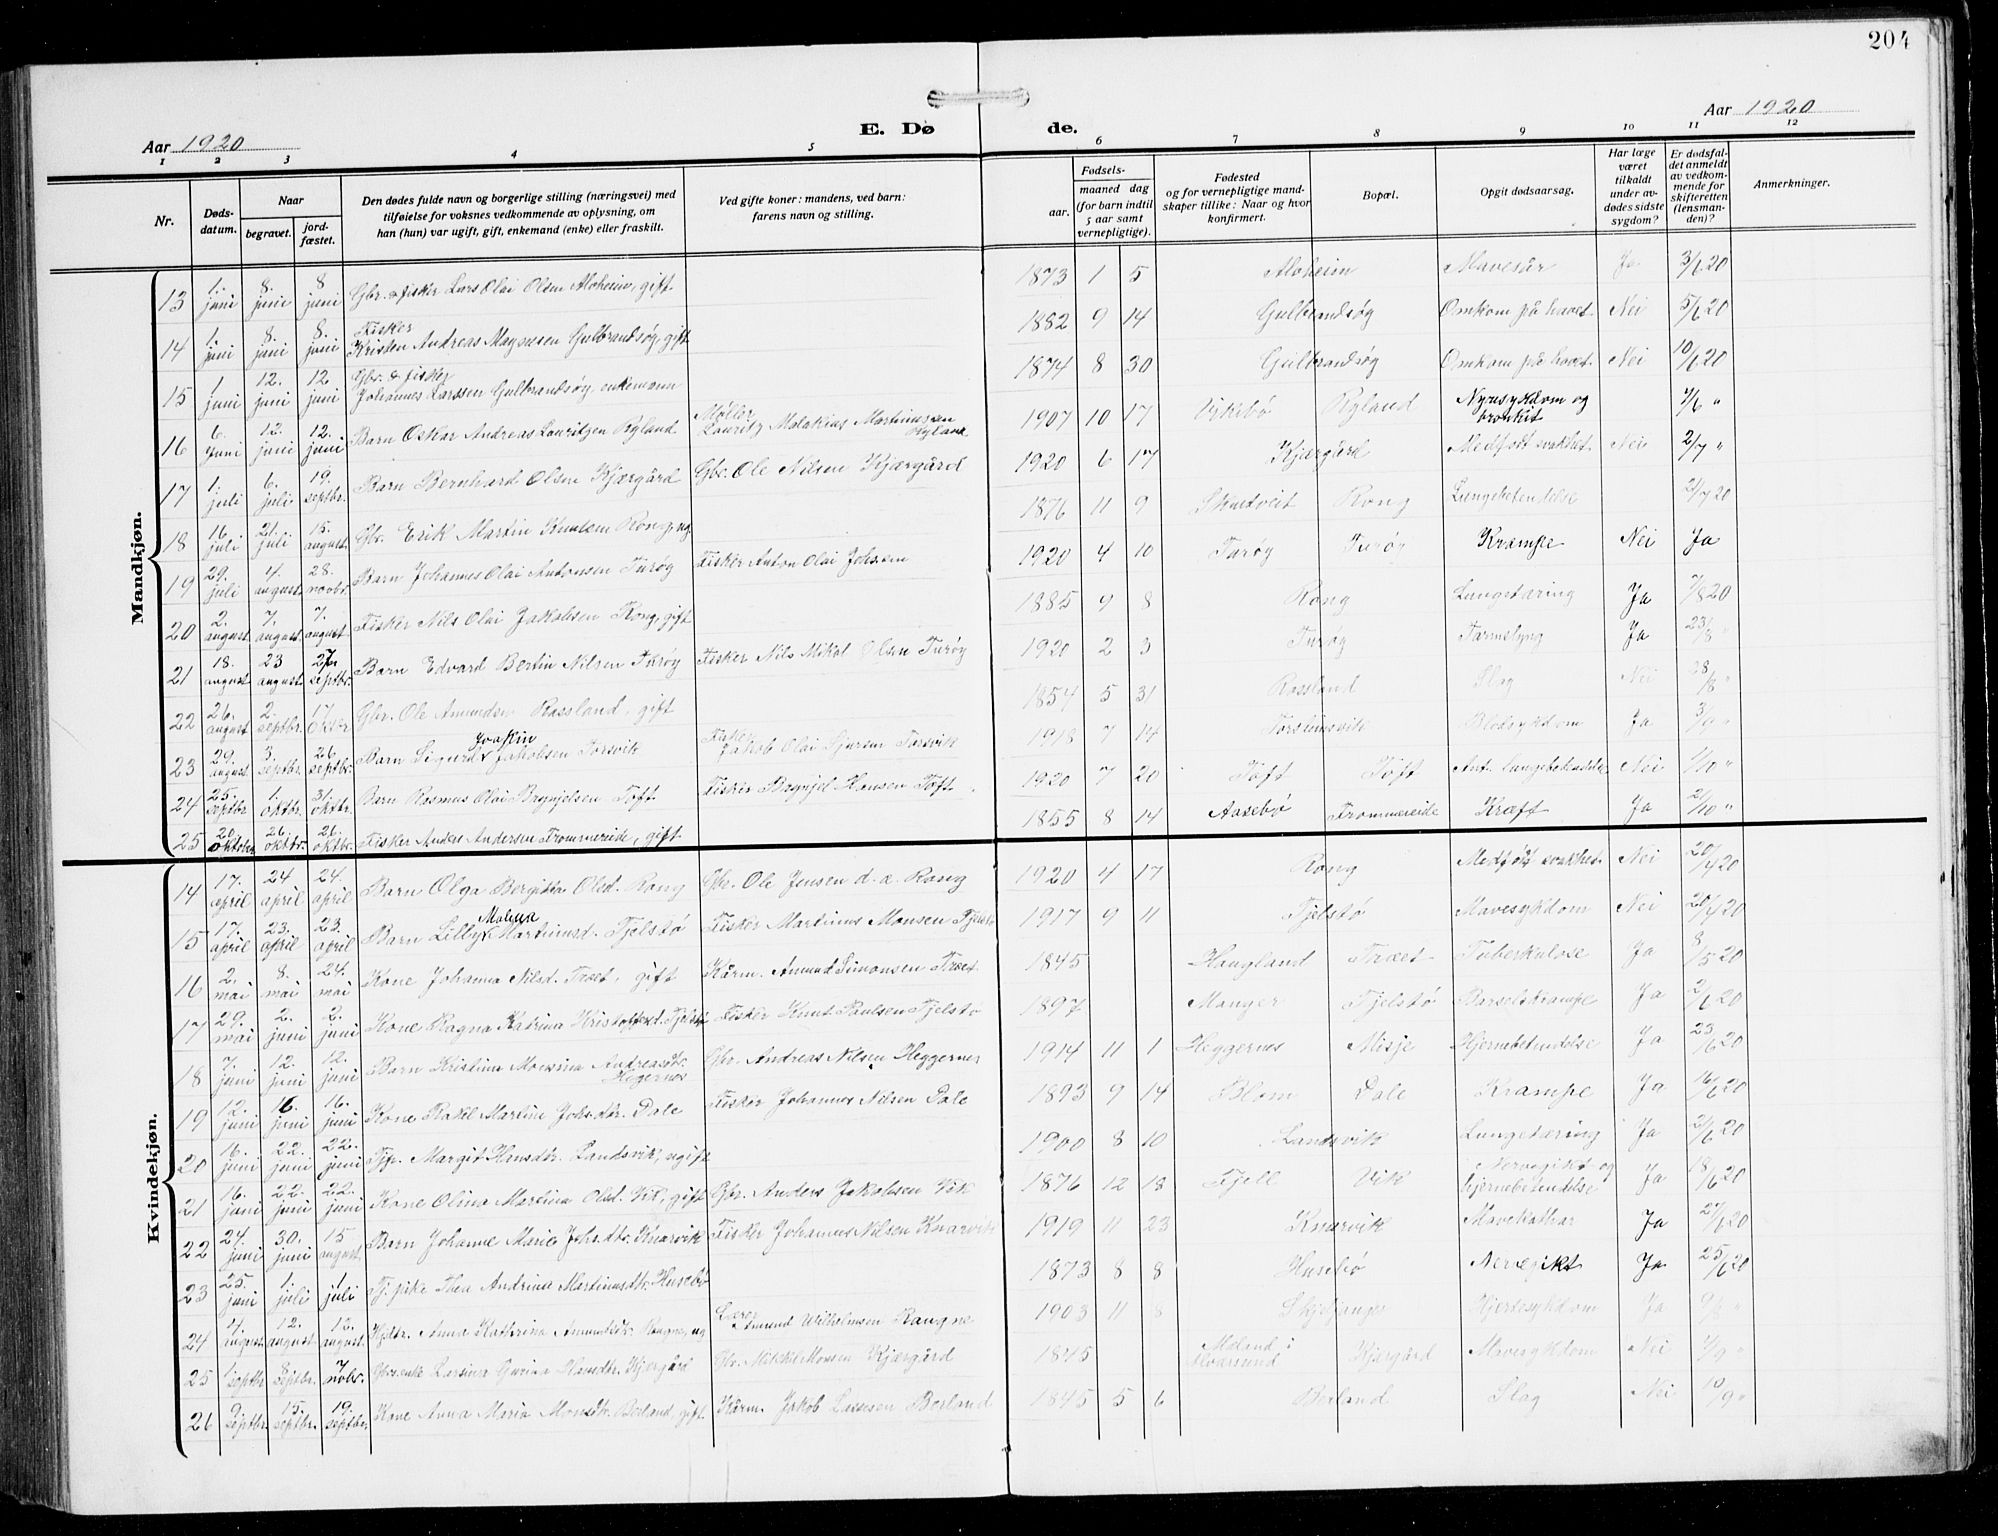 204
Aar 1920
E. Dø
de.
Aar 1920
1 2 3 4 5 6 7 8 9 10 11 12
Nr.
Døds-
datum.
Naar
begravet.
jord-
fæstet.
Den dødes fulde navn og borgerlige stilling (næringsvei) med
tilføielse for voksnes vedkommende av oplysning, om
han (hun) var ugift, gift, enkemand (enke) eller fraskilt.
Ved gifte koner: mandens, ved barn:
farens navn og stilling.
Fødsels-
aar.
maaned dag
(for barn indtil
5 aar samt
vernepligtige).
Fødested
og for vernepligtige mand-
skaper tillike: Naar og hvor
konfirmert.
Bopæl.
Opgit dødsaarsag.
Har læge
været
tilkaldt
under av-
dødes sidste
sygdom?
Er dødsfal-
det anmeldt
av vedkom-
mende for
skifteretten
(lensman-
den)?
Anmerkninger.
Mandkjøn.
13 1. juni 8. juni 8 juni Gbr. & fisker Lars Olai Olsen Aloheim, gift 1873 1 5 Aloheim Mavesår Ja 3/6 20
14 1. juni 8. juni 8. juni Fisker Kristen Andreas Magnesen Gulbrandsøy, gift 1882 9 14 Gulbrandsøy Omkom på havet Nei 5/6 20
15 1 juni 12. juni 12 juni Gbr. & fisker Johannes Larssen Gulbrandsøy, enkemann 1874 8 30 Gulbrandsøy Omkom på havet Nei 10/6 20
16 6. juni 12. juni 12. juni Barn Oskar Andreas Lauritzen Ryland Møller Lauritz Malakias Martinussen Ryland 1907 10 17 Vikebø Ryland Nyresykdom og bronkit 7/6 "
17 1. juli 6. juli 19. septbr. Barn Bernhard Olsen Kjærgård Gbr. Ole Nilsen Kjærgård 1920 6 17 Kjærgård Medfødt svakhet Nei 2/7 "
18 16 juli 21. juli 15. august Gbr. Erik Martin Knutsen Rong, ug. 1876 11 9 Skudveit Rong Lungebetendelse 21/7 20
19 29. juli 4. august 28. novbr. Barn Johannes Olai Antonsen Turøy Fisker Anton Olai Johsen 1920 4 10 Turøy Turøy Krampe Nei Ja
20 2. august 7. august 7. august Fisker Nils Olai Jakobsen Rong, gift 1885 9 8 Rong Lungetæring Ja 7/8 20
21 18. august 23 august 27. septbr. Barn Edvard Bertin Nilsen Turøy Fisker Nils Mikal Olsen Turøy 1920 2 3 Turøy Tarmslyng Ja 23/8 "
22 26. august 2. septbr. 17. Gbr. Ole Amundsen Rossland, gift 1854 5 31 Rossland Slag Nei 28/8 "
23 29. august 3. septbr. 26 septbr. Barn Sigurd Joakim Jakobsen Torsvik Fisker Jakob Olai Sjursen Torsvik 1918 7 14 Blodsykdom Ja 3/9 "
24 25. septbr 1. oktbr. 31. oktbr. Barn Rasmus Olai Brynjelsen Toft Fisker Brynjel Hansen Toft 1920 7 20 Toft Toft Ant. Lungebetendelse Nei 1/10 "
25 20. oktober 26. oktbr. 26. oktbr. Fisker Anders Andersen Frommereide, gift 1855 8 14 Aasebø Frommereide Kræft Ja 2/10 "
Kvindekjøn.
14 17. april 24 april 24. april Barn Olga Bergitta Olsd. Rong Gbr. Ole Jensen d. a. Rong 1920 4 17 Rong Medfødt svakhet Nei 20/4 20
15 17. april 23. april 23. april Barn Lilly Malena Martinusd. Fjelstø Fisker Martinus Monsen Fjelstø 1917 9 11 Fjelstø Mavesykdom Nei 20/4 20
16 2. mai 8. mai 24. mai Kone Johanna Nilsd. Træet, gift Kårm. Amund Simonsen Træet 1845 Haugland Træet Tuberkulose Ja 8/5 20
17 29. mai 2. juni 2. juni Kone Ragna Katrina Kristoffersd. Fjelstø Fisker Knut Paulsen Fjelstø 1897 Manger Fjelstø Barselskrampe Ja 2/6 20
18 7. juni 12. juni 12. juni Barn Kristina Monsina Andreasdtr. Hegernes Gbr. Andreas Nilsen Heggernes 1914 11 1 Heggernes Misje Hjernebetendelse Ja 23/6 20
19 12. juni 16. juni 16. juni Kone Rakel Martina Johs.dtr. Dale Fisker Johannes Nilsen Dale 1893 9 14 Blom Dale Krampe Ja 16/6 20
20 16. juni 22. juni 22. juni Tjp. Margit Hansdtr. Landsvik, ugift 1900 8 10 Landsvik Lungetæring Ja 21/6 20
21 16. juni 22. juni 22. juni Kone Olina Martina Olsd. Vik, gift Gbr. Anders Jakobsen Vik 1876 12 18 Fjell Vik Nervegikt og hjernebetendelse Ja 18/6 20
22 24. juni 30. juni 15 august. Barn Johanne Marie Johs.dtr. Knarvik Fisker Johannes Nilsen Knarvik 1919 11 23 Knarvik Mavekatar Ja 27/6 20
23 25. juni 1. juli 1 juli Tj. pike Thea Andrina Martinusdtr. Husebø 1873 8 8 Husebø Nervegikt Ja 25/6 20
24 4. august 12. august 12. august. Anna Kathrina Amundsdtr. Rongne, ug Lærer Edmund Wilhelmsen Rongne 1903 11 8 Skjelanger Hjertesykdom Ja 9/8 "
25 1. septbr 8 septbr. 7 novbr. Gbr.enke Larsina Gurina Hansdtr. Kjærgård Gbr. Mikkel Monsen Kjærgård 1845 Moland i Alversund Kjærgård Mavesykdom Nei 7/9 "
26 9. septbr. 15. septbr. 19. septbr. Kone Anna Maria Monsdtr. Berland, gift Kårm. Jakob Lassesen Berland 1845 5 6 Berland Slag Nei 10/9 "